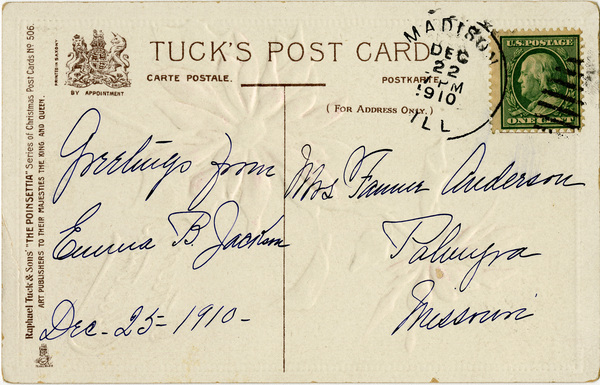 TUCK'S POST CARD
CARTE POSTALE.
POSTKARTE
(FOR ADDRESS ONLY.)
BY APPOINTMENT
PRINTED IN SAXONY
Raphael Tuck & Sons' "THE POINSETTIA" Series of Christmas Post Cards No 506.
ART PUBLISHERS TO THEIR MAJESTIES THE KING AND QUEEN.
MADISON
DEC
22
PM
1910
ILL
U.S. POSTAGE
ONE CENT
Greetings from
Emma B. Jackson
Dec - 25 - 1910 -
Mrs Fannie Anderson
Palmyra
Missouri